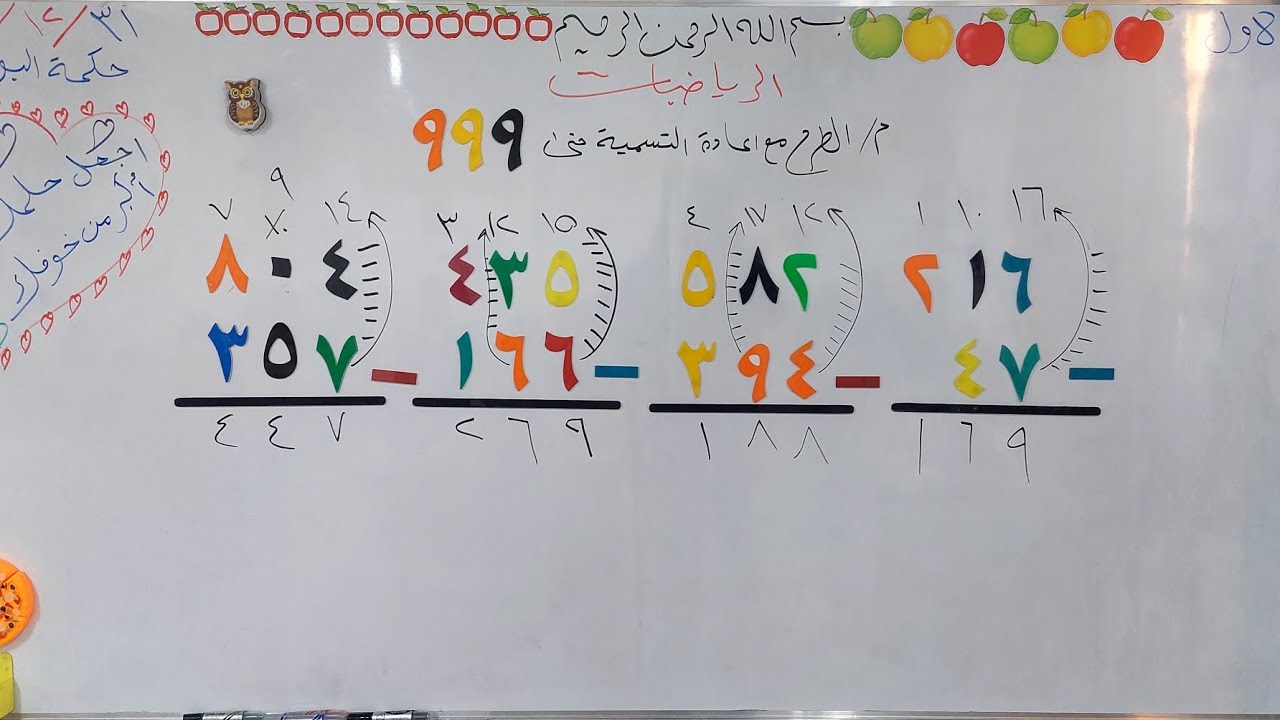 الاول
بسم الله الرحمن الرحيم
٣١/١٢/
الرياضيات
حكمة اليو
م/ الطرح مع اعادة التسمية حتى ٩٩٩
اجعل حلمك
أكبر من خوفك
١ ١٠ ١٦
٢١٦
٤٧ -
١٦٩
٤ ١٧ ١٢
٥٨٢
٣٩٤ -
١٨٨
٣ ١٢ ١٥
٤٣٥
١٦٦ -
٢٦٩
٩
٧ ١٠ ١٤
٨٠٤
٣٥٧ -
٤٤٧